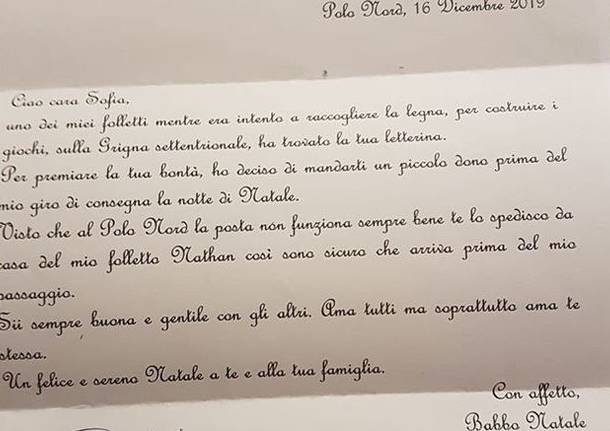 Polo Nord, 16 Dicembre 2019
Ciao cara Sofia,
uno dei miei folletti mentre era intento a raccogliere la legna, per costruire i
giochi, sulla Grigna settentrionale, ha trovato la tua letterina.
Per premiare la tua bontà, ho deciso di mandarti un piccolo dono prima del
mio giro di consegna la notte di Natale.
Visto che al Polo Nord la posta non funziona sempre bene te lo spedisco da
casa del mio folletto Nathan così sono sicuro che arriva prima del mio
passaggio.
Sii sempre buona e gentile con gli altri. Ama tutti ma soprattutto ama te
stessa.
Un felice e sereno Natale a te e alla tua famiglia.
Con affetto,
Babbo Natale